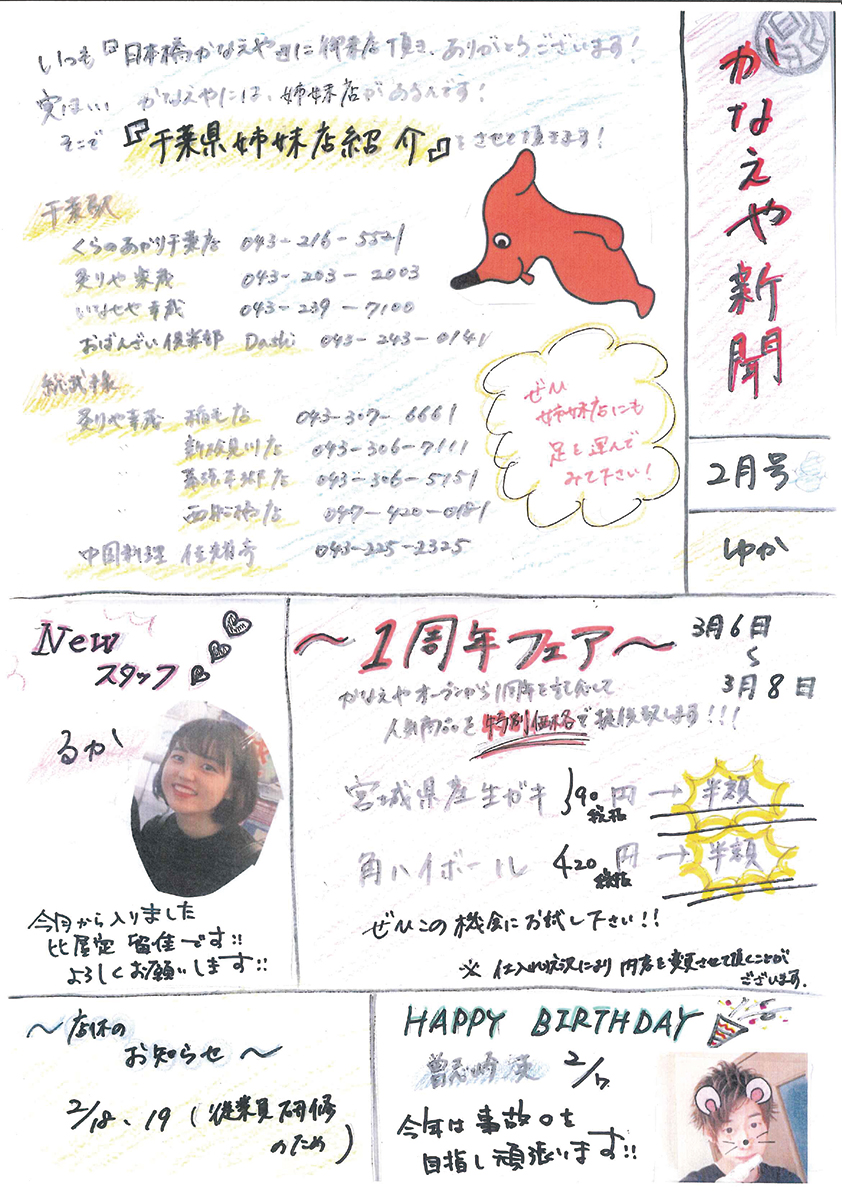 かなえや新聞
2月号
ゆか
いつも『日本橋かなえや』に御来店頂き、ありがとうございます!
実は… かなえやには、姉妹店があるんです!
そこで『千葉県姉妹店紹介』をさせて頂きます!
千葉駅
くらのあかり千葉店 043-216-5521
炙りや幸蔵 043-203-2003
いなせや幸蔵 043-239-7100
おばんざい倶楽部 Dashi 043-243-0141
総武線
炙りや幸蔵 稲毛店 043-307-6661
〃 新検見川店 043-306-7111
〃 幕張本郷店 043-306-5151
〃 西船橋店 047-420-0181
中国料理 043-225-2325
ぜひ
姉妹店にも
足を運んで
みて下さい!
New
スタッフ
るか
今月から入りました
比屋定 留佳です!!
よろしくお願いします!!
〜1周年フェア〜
3月6日
〜
3月8日
かなえやオープンから1周年を記念して
人気商品を特別価格で提供致します!!!
宮城県産生ガキ 390円 税抜 → 半額
角ハイボール 420円 税抜 → 半額
ぜひこの機会にお試し下さい!!
※ 仕入れ状況により内容を変更させて頂くことが
ございます.
〜店休の
お知らせ〜
2/18、19 (従業員研修
のため)
HAPPY BIRTHDAY
曽志崎 2/7
今年は事故0を
目指し頑張います!!